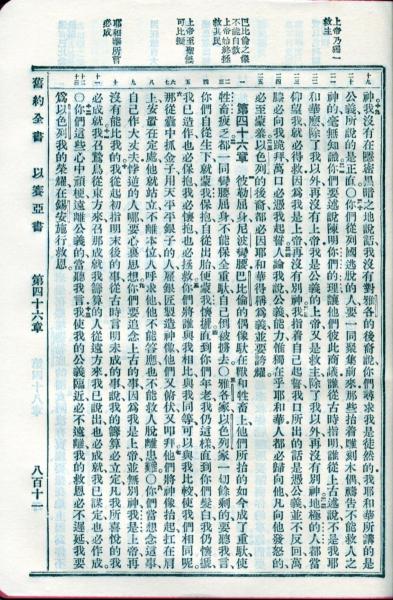 上帝乃獨一救主
巴比倫之像不能自救上帝始終拯救其民
上帝至聖無可比擬
耶和華所言必成
神我沒有在隱密黑暗之地說話我沒有對雅各的後裔說你們尋求我是徒然的我耶和華所講的是
公義所說的是正直○你們從列國逃脫的人要一同聚集前來那些抬着雕刻木偶禱告不能救人之
神的毫無知識你們要述說陳明你們的理讓他們彼此商議誰從古時指明誰從上古述說不是我耶
和華麼除了我以外再沒有上帝我是公義的上帝又是救主除了我以外再沒有別神地極的人都當
仰望我就必得救因爲我是上帝再沒有別神我指着自己起誓我口所出的話是憑公義並不反回萬
膝必向我跪拜萬口必憑我起誓人論我說公義能力惟獨在乎耶和華人都必歸向他凡向他發怒的
必至蒙羞以色列的後裔都必因耶和華得稱爲義並要誇耀
第四十六章 彼勒屈身尼波彎腰巴比倫的偶像馱在獸和牲畜上他們所抬的如今成了重馱使
牲畜疲乏都一同彎腰屈身不能保全重馱自己倒被擄去○雅各家以色列家一切餘剩的要聽我言
你們自從生下就蒙我保抱自從出胎便蒙我懷搋直到你們年老我仍這樣直到你們髮白我仍懷搋
我已造作也必保抱我必懷抱也必拯救你們將誰與我相比與我同等可以與我比較使我們相同呢
那從囊中抓金子用天平平銀子的人雇銀匠製造神像他們又俯伏又叩拜他們將神像抬起扛在肩
上安置在定處他就站立不離本位人呼求他他不能答應也不能救人脫離患難○你們當想念這事
自己作大丈夫悖逆的人哪要心裏思想你們要追念上古的事因爲我是上帝並無別神我是上帝再
沒有能比我的我從起初指明末後的事從古時言明未成的事說我的籌算必立定凡我所喜悅的我
必成就我召鷙鳥從東方來召那成就我籌算的人從遠方來我已說出也必成就我已謀定也必作成
○你們這些心中頑梗遠離公義的當聽我言我使我的公義臨近必不遠離我的救恩必不遲延我要
爲以色列我的榮耀在錫安施行救恩
舊約全書 以賽亞書 第四十六章 八百十一